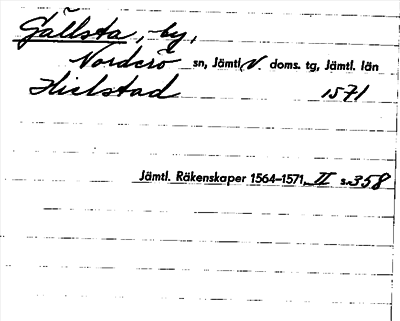 Gällsta, by,
Norderö sn, Jämtl. N. doms. tg, Jämtl. län
Hielstad 1571
Jämtl. Räkenskaper 1564-1571, II s. 358